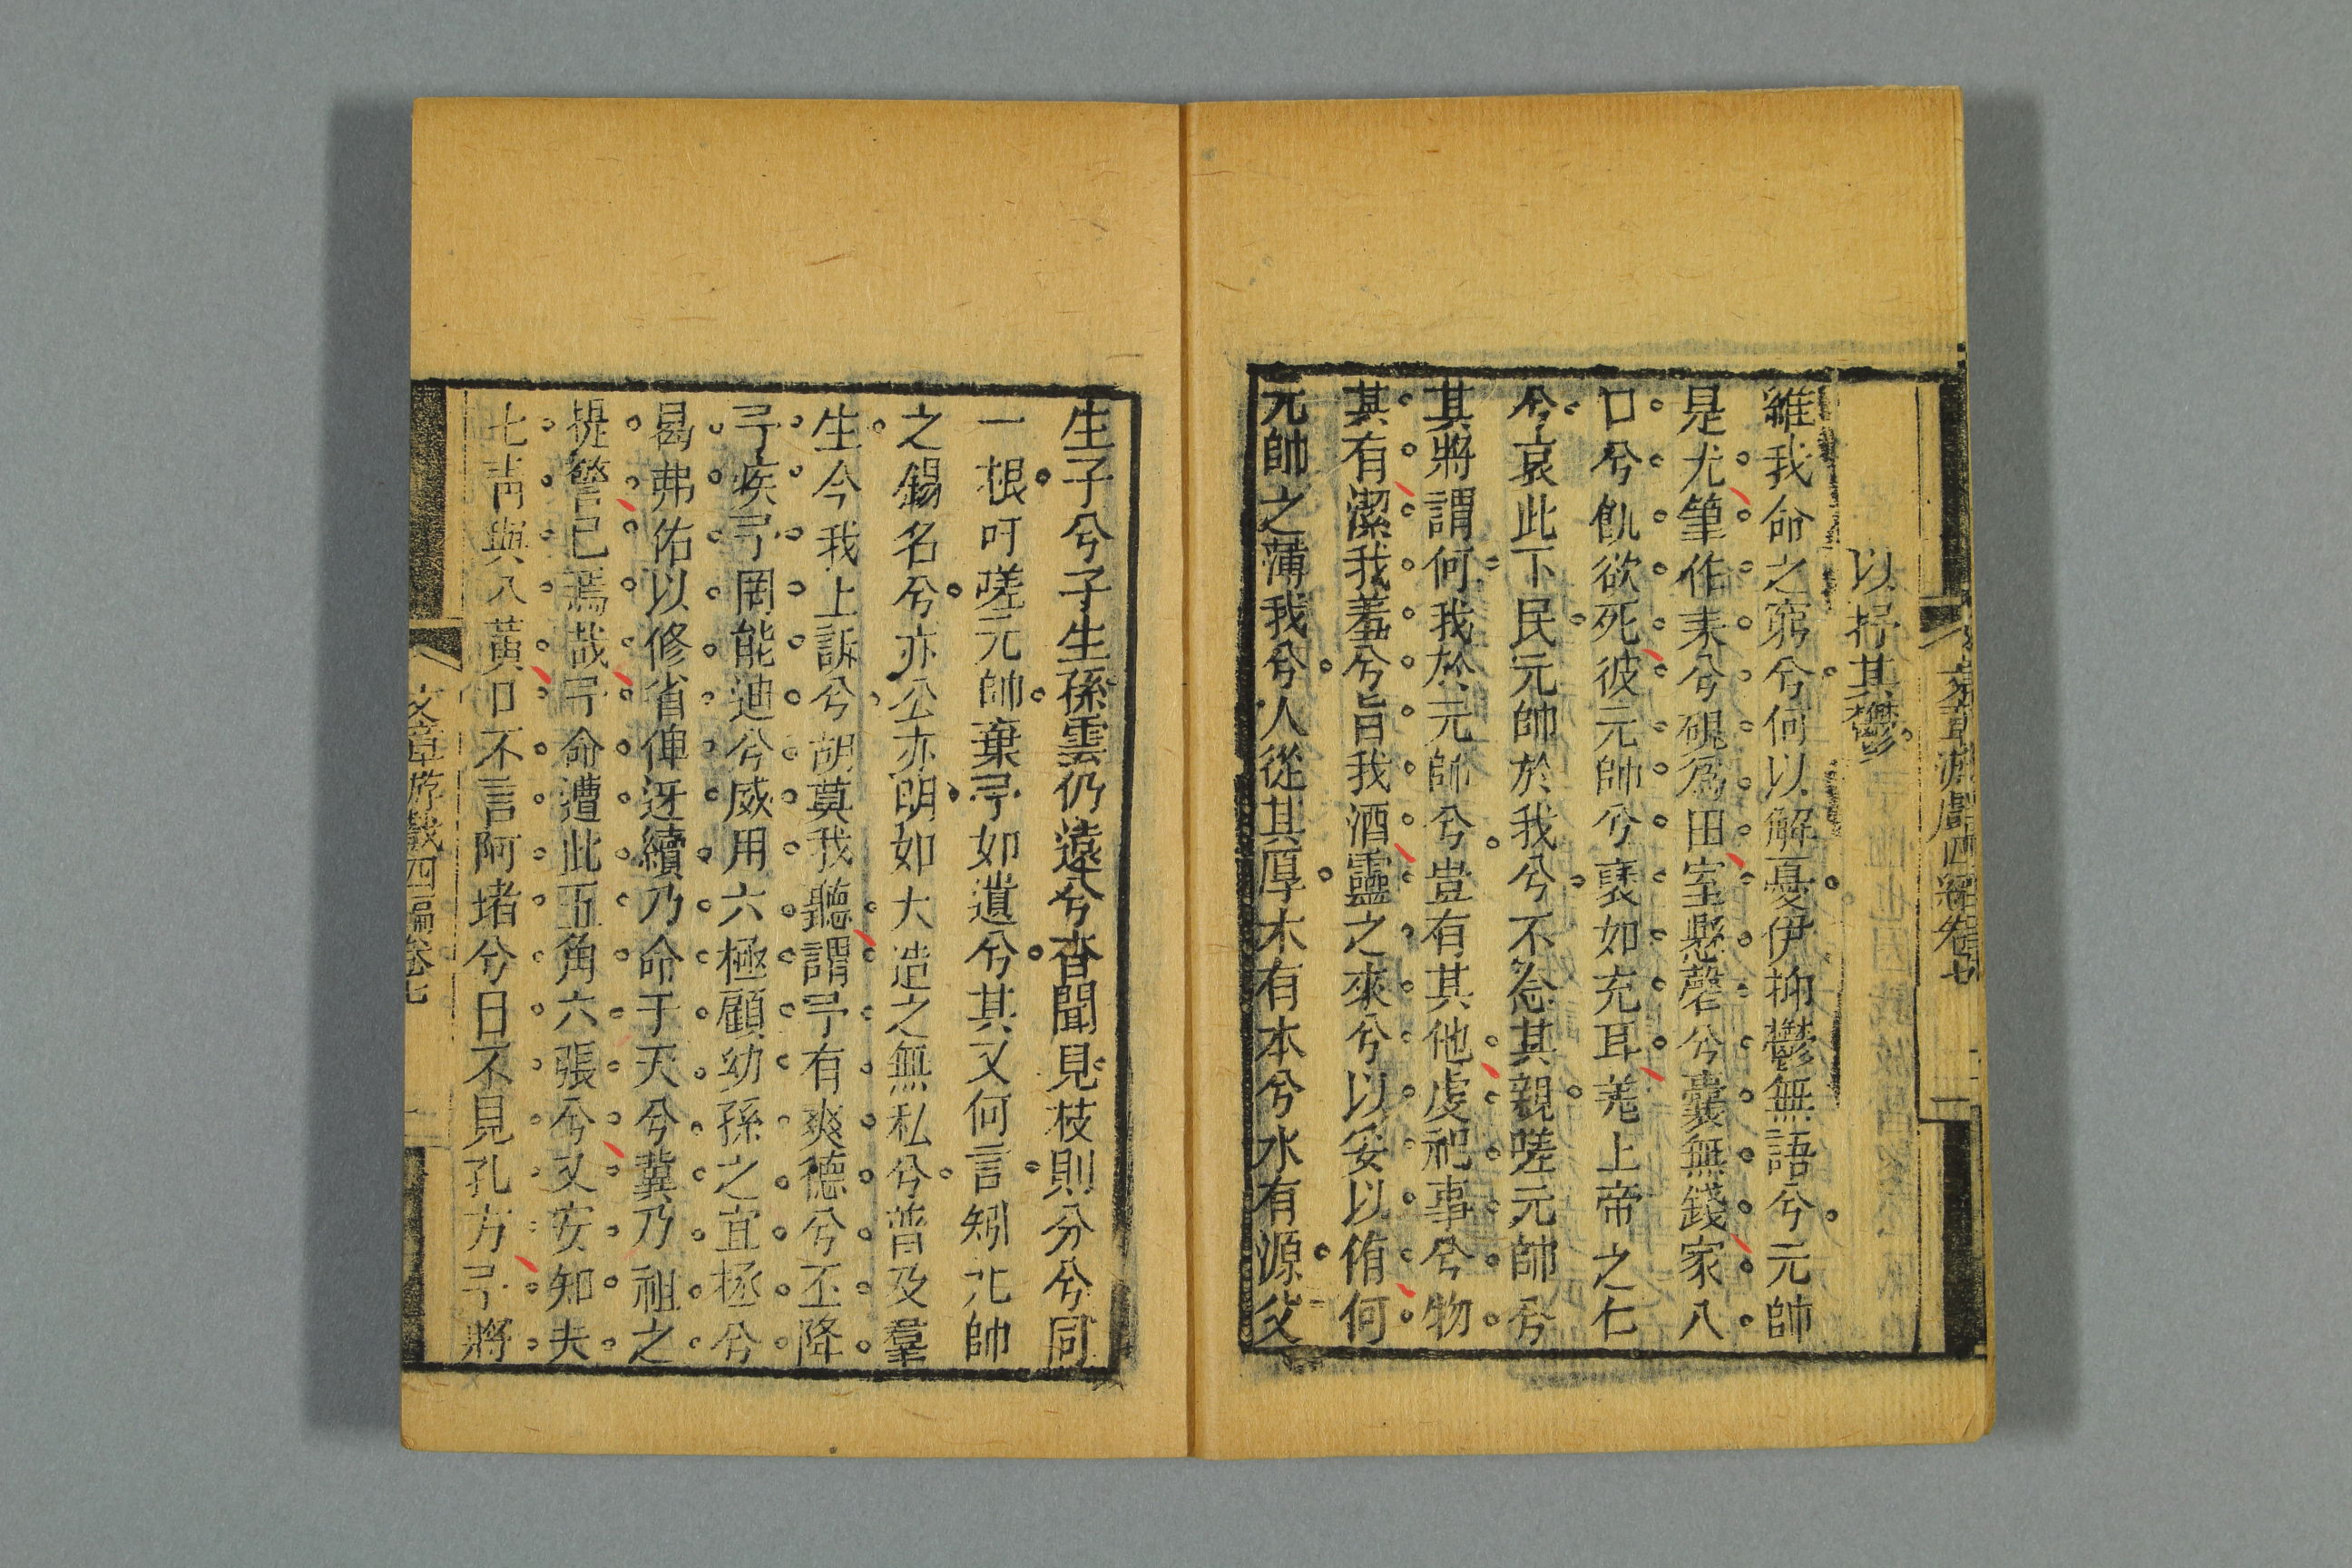 文章游戲四編卷七
以抒其鬱
維我命之窮兮何以解憂伊抑鬱無語兮元帥
是尤筆作耒兮硯為田室懸磬兮囊無錢家八
口兮飢欲死彼元帥兮褎如充耳羌上帝之仁
兮哀此下民元帥於我兮不念其親嗟元帥兮
其將謂何我於元帥兮豈有其他虔祀事兮物
其有潔我羞兮旨我酒靈之來兮以妥以侑何
元帥之薄我兮人從其厚木有本兮水有源父
生子兮子生孫雲仍遠兮杳聞見枝則分兮同
一根吁嗟元帥棄予如遺兮其又何言矧元帥
之錫名兮亦公亦明如大造之無私兮普及羣
生今我上訴兮胡莫我聽謂予有爽德兮丕降
予疾予罔能迪兮威用六極顧幼孫之宜拯兮
曷弗佑以修省俾迓續乃命于天兮冀乃祖之
提警已焉哉予命遭此五角六張兮又安知夫
七青與八黃口不言阿堵兮目不見孔方予將
文章游戲四編卷七